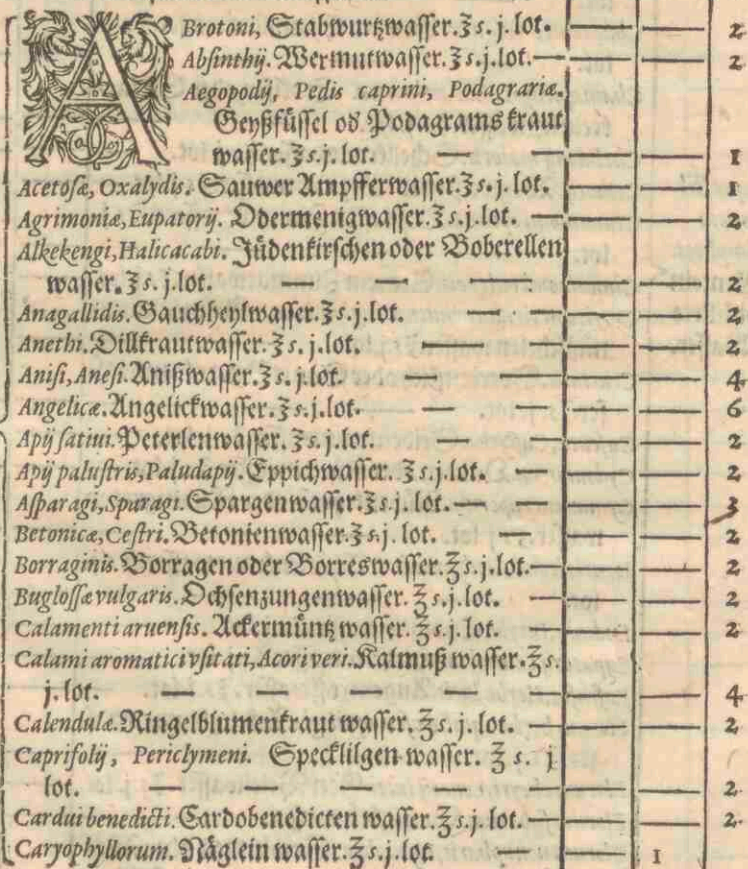 ABrotoni, Stabwurtzwasser. ℥ s. j. lot. — — 2
Absinthij. Wermutwasser. ℥ s. j. lot. — — — 2
Aegopodij, Pedis caprini, Podagrariæ.
Geyßfüssel od Podagrams kraut
wasser. ℥ s. j. lot. — — — 1
Acetosæ, Oxalydis. Sauwer Ampfferwasser. ℥ s. j. lot. — — 1
Agrimoniæ, Eupatorij. Odermenigwasser. ℥ s. j. lot. — — — 2
Alkekengi, Halicacabi. Jüdenkirschen oder Boberellen
wasser. ℥ s. j. lot. — — — — — 2
Anagallidis. Gauchheylwasser. ℥ s. j. lot. — — — 2
Anethi. Dillkrautwasser. ℥ s. j. lot. — — — — 2
Anisi, Anesi. Anißwasser. ℥ s. j. lot. — — — — 4
Angelicæ. Angelickwasser. ℥ s. j. lot. — — — — 6
Apij satiui. Peterlenwasser. ℥ s. j. lot. — — — — 2
Apij palustris, Paludapij. Eppichwasser. ℥ s. j. lot. — — — 2
Asparagi, Sparagi. Spargenwasser. ℥ s. j. lot. — — — — 3
Betonicæ, Cestri. Betonienwasser. ℥ s. j. lot. — — — 2
Borraginis. Borragen oder Borreswasser. ℥ s. j. lot. — — — 2
Buglossæ vulgaris. Ochsenzungenwasser. ℥ s. j. lot. — — — 2
Calamenti aruensis. Ackermüntz wasser. ℥ s. j. lot. — — — 2
Calami aromatici vsitati, Acori veri. Kalmuß wasser. ℥ s.
j. lot. — — — — — — — 4
Calendulæ. Ringelblumenkraut wasser. ℥ s. j. lot. — — — 2
Caprifolij, Periclymeni. Specklilgen wasser. ℥ s. j
lot. — — — — — — — 2
Cardui benedicti. Cardobenedicten wasser. ℥ s. j. lot. — — — 2
Caryophyllorum. Näglein wasser. ℥ s. j. lot — — 1